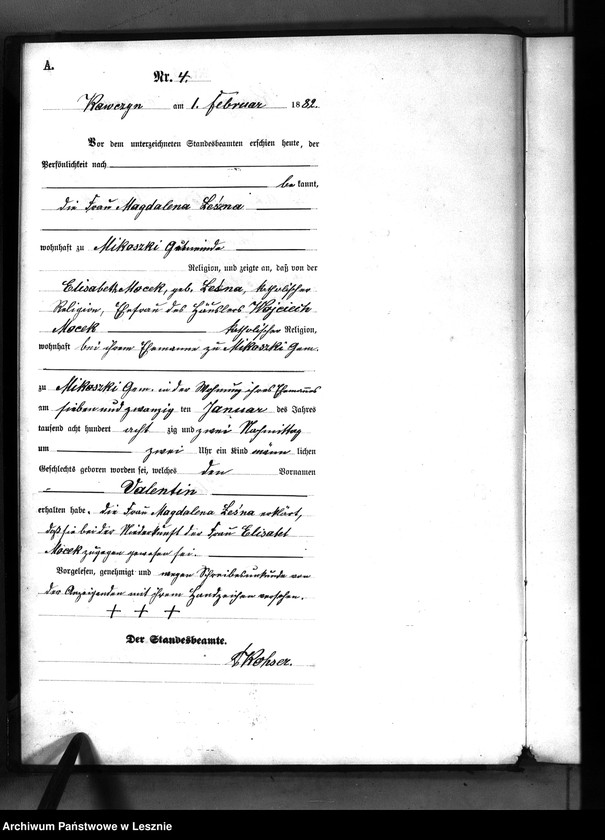 A.
Nr. 4.
Kawczyn am 1. Februar 1882.
Vor dem unterzeichneten Standesbeamten erschien heute, der
Persönlichkeit nach
bekannt,
die Frau Magdalena Leśna
wohnhaft zu Mikoszki Gemeinde
Religion, und zeigte an, daß von der
Elisabeth Mocek, geb. Leśna, katholischer
Religion, Ehefrau des Häuslers Wojciech
Mocek katholischer Religion,
wohnhaft bei ihrem Ehemanne zu Mikoszki Gem.
zu Mikoszki Gem. in der Wohnung ihres Ehemanns
am sieben und zwanzig ten Januar des Jahres
tausend acht hundert acht zig und zwei Nachmittag
um zwei Uhr ein Kind männ lichen
Geschlechts geboren worden sei, welches den Vornamen
Valentin
erhalten habe. die Frau Magdalena Leśna erklärt,
daß sie bei der Niederkunft der Frau Elisabet
Mocek zugegen gewesen sei.
Vorgelesen, genehmigt und wegen Schreibesunkunde von
der Anzeigenden mit ihrem Handzeichen versehen.
+ + +
Der Standesbeamte.
Archiwum Państwowe w Lesznie